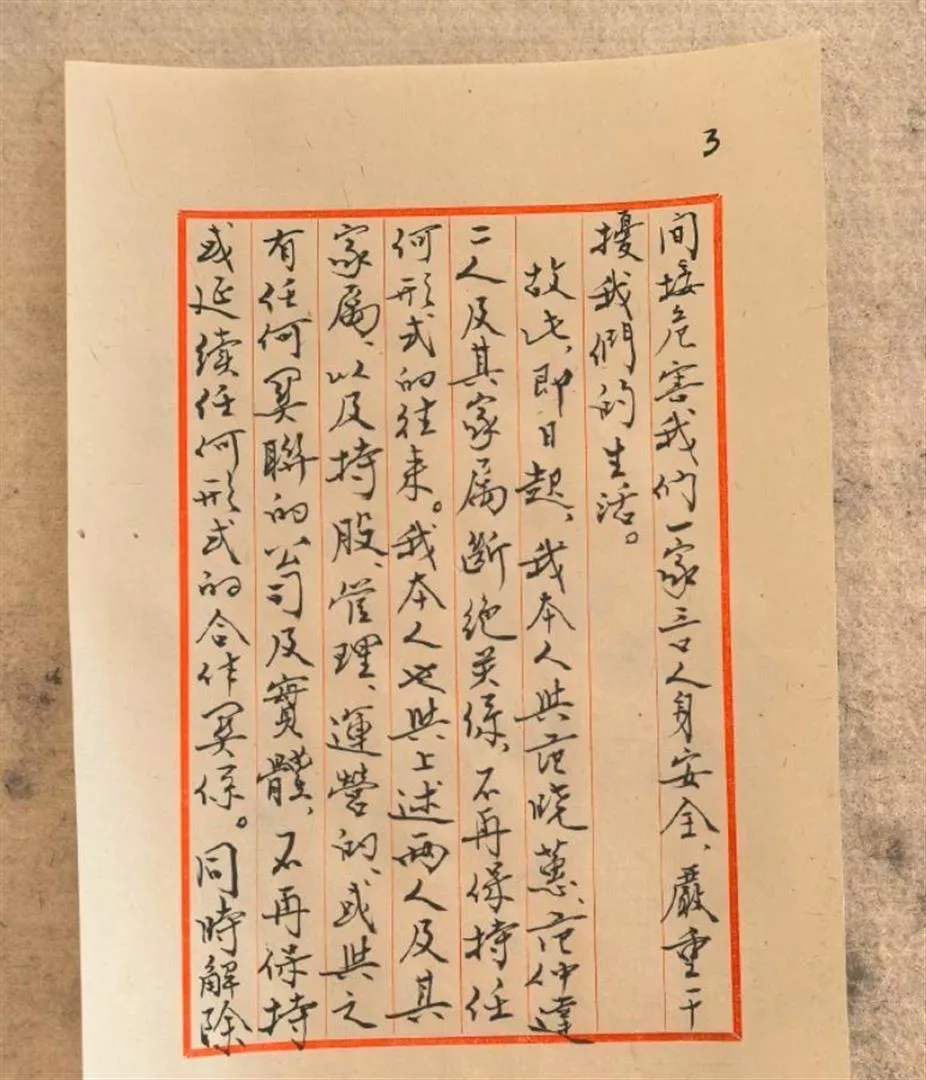 3
间接危害我们一家三口人身安全、嚴重干
擾我們的生活。
故此，即日起，我本人與范晓蕙、范仲達
二人及其家屬斷绝关係，不再保持任
何形式的往来。我本人也與上述两人及其
家屬、以及持股、管理、運营的、或與之
有任何関聯的公司及實體，不再保持
或延續任何形式的合作関係。同時解除